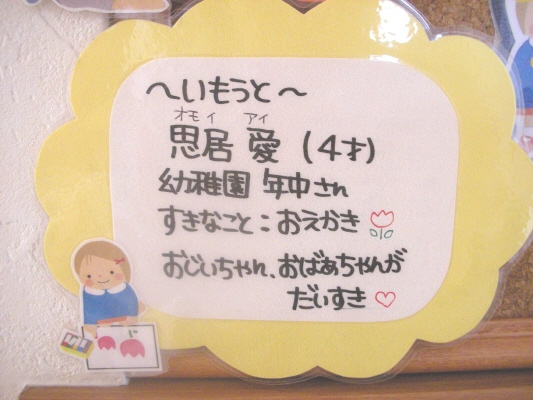 ～いもうと～
オモイ アイ
思居 愛 (4才)
幼稚園 年中さん
すきなこと：おえかき
おじいちゃん、おばあちゃんが
だいすき♡